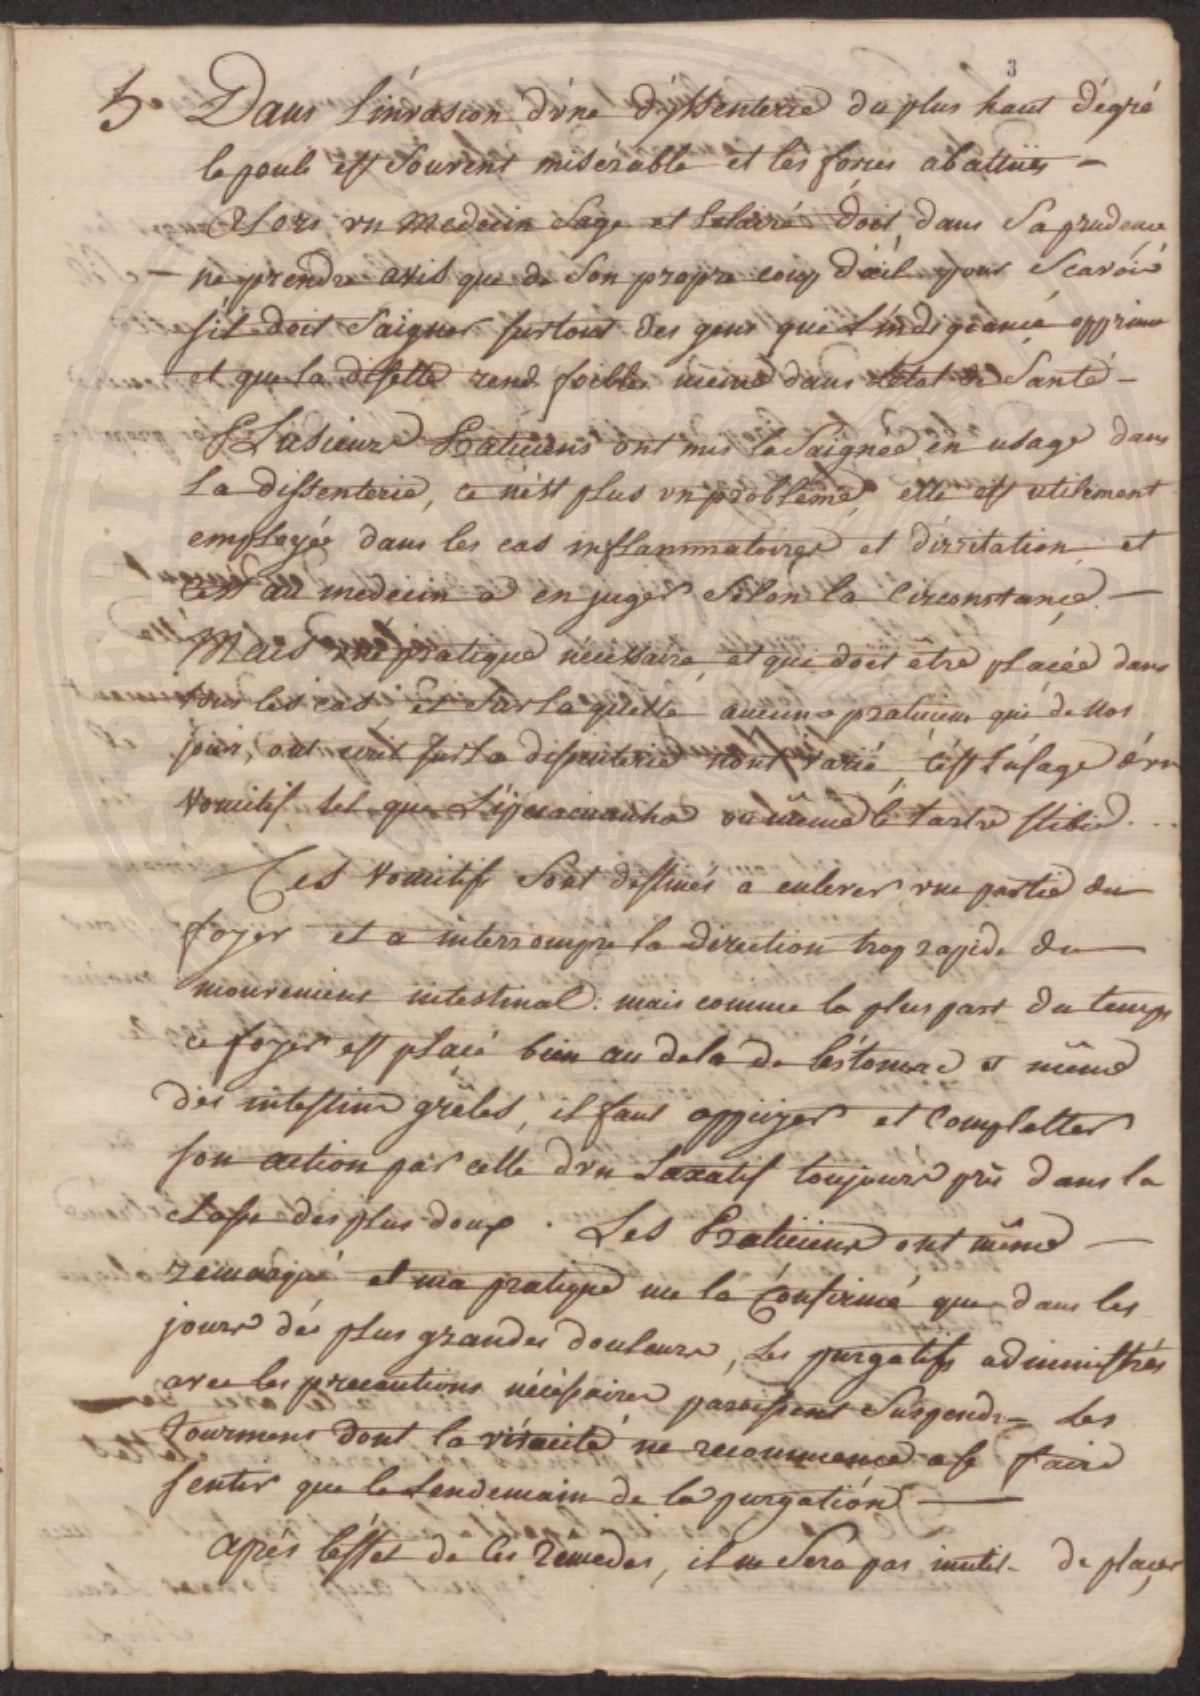 3
5 Dans L'invasion d'vne dissenterie du plus haut dégré
le pouls est Souvent misérable et les forces abattües —
Alors vn Medecin Sage et Eclairé doit, dans Sa prudence
ne prendre avis que de Son propre coup d'œil pour Scavoir
s'il doit Saigner surtout des gens que L'indigeance opprime
et que la disette rend foibles même dans L'état de Santé —
PLusieurs Praticiens ont mis la Saignée en usage dans
La dissenterie, ce n'est plus vn problême, elle est utilement
employée dans les cas inflammatoires et d'irritation et
c'est au medecin a en juger Selon la Circonstance. —
Mais vne pratique nécessaire, et qui doit être placée dans
tous les cas, et Sur La quelle aucuns praticiens qui de nos
jours, ont ecrit sur La dissenterie n'ont varié, c'est L'usage d'vn
vomitif tel que L'ipecacuanha ou même le tartre stibié . . .
Ces vomitifs Sont destinés a enlever vne partie du
foyer et a interrompre la direction trop rapide du
mouvement intestinal: mais comme la plus part du temps
ce foyer est placé bien au dela de l'estomac et même
des intestins grêles, il faut appuyer et Completter
son action par celle d'vn Laxatif toujours pris dans la
classe des plus doux. Les Praticiens ont même —
remarqué et ma pratique me l'a Confirmé que dans les
jours des plus grandes douleurs, Les purgatifs administrés
avec les precautions nécessaires paroissent Suspendre Les
tourmens dont la vivacité ne recommence a se faire
sentir que le Lendemain de la purgation —
Après l'effet de Ces Rémedes, il ne Sera pas inutile de placer